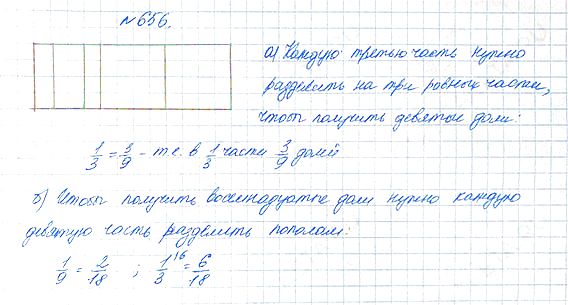 №656.
а) Каждую третью часть нужно
разделить на три равных части,
чтобы получить девятые доли:
1/3 = 3/9 - т.е. в 1/3 части 3/9 долей
б) Чтобы получить восемнадцатые доли нужно каждую
девятую часть разделить пополам:
1/9 = 2/18 ; 1/3 \6 = 6/18